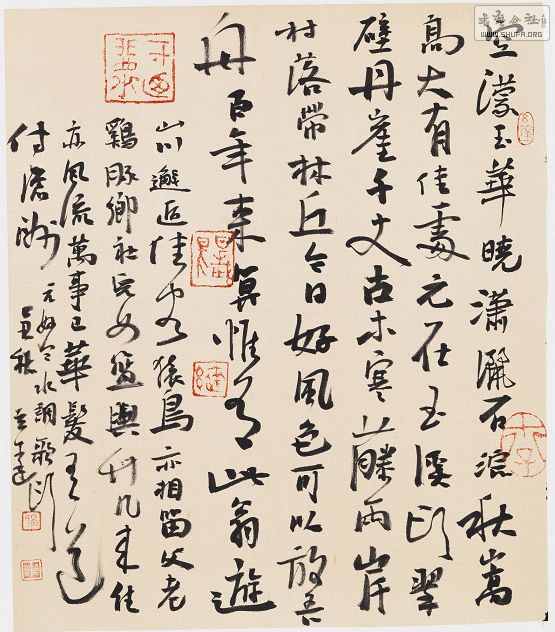 空濛玉華曉瀟灑石淙秋嵩
高大有佳處元在玉溪頭翠
壁丹崖千丈古木寒藤兩岸
村落帶林丘今日好風色可以放吾
舟百年來算惟有此翁遊
山川邂逅佳客猿鳥亦相留父老
鷄豚鄉社兒女籃輿竹几來往
亦風流萬事已華髮吾道
付滄洲
元好問水調歌頭
WWW.SHUFA.ORG